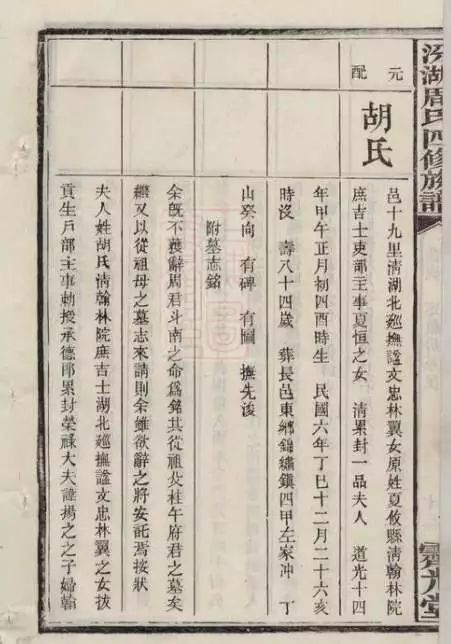 汾湖周氏四修族譜
霽光堂
元配
胡氏
邑十九里清湖北廵撫諡文忠林翼女原姓夏攸縣清翰林院
庶吉士吏部主事夏恒之女 清累封一品夫人 道光十四
年甲午正月初四酉時生 民國六年丁巳十二月二十六亥
時沒 壽八十四歲 葬長邑東鄉錦繡鎮四甲左家冲 丁
山癸向 有碑 有圖 撫先浚
附墓志銘
余既不獲辭周君斗南之命爲銘其從祖父桂午府君之墓矣
纓又以從祖母之墓志來請則余雖欲辭之將安託焉按狀
夫人姓胡氏清翰林院庶吉士湖北廵撫諡文忠林翼之女拔
貢生戶部主事勅授承德郎累封榮祿大夫諱揚之之子婦翰